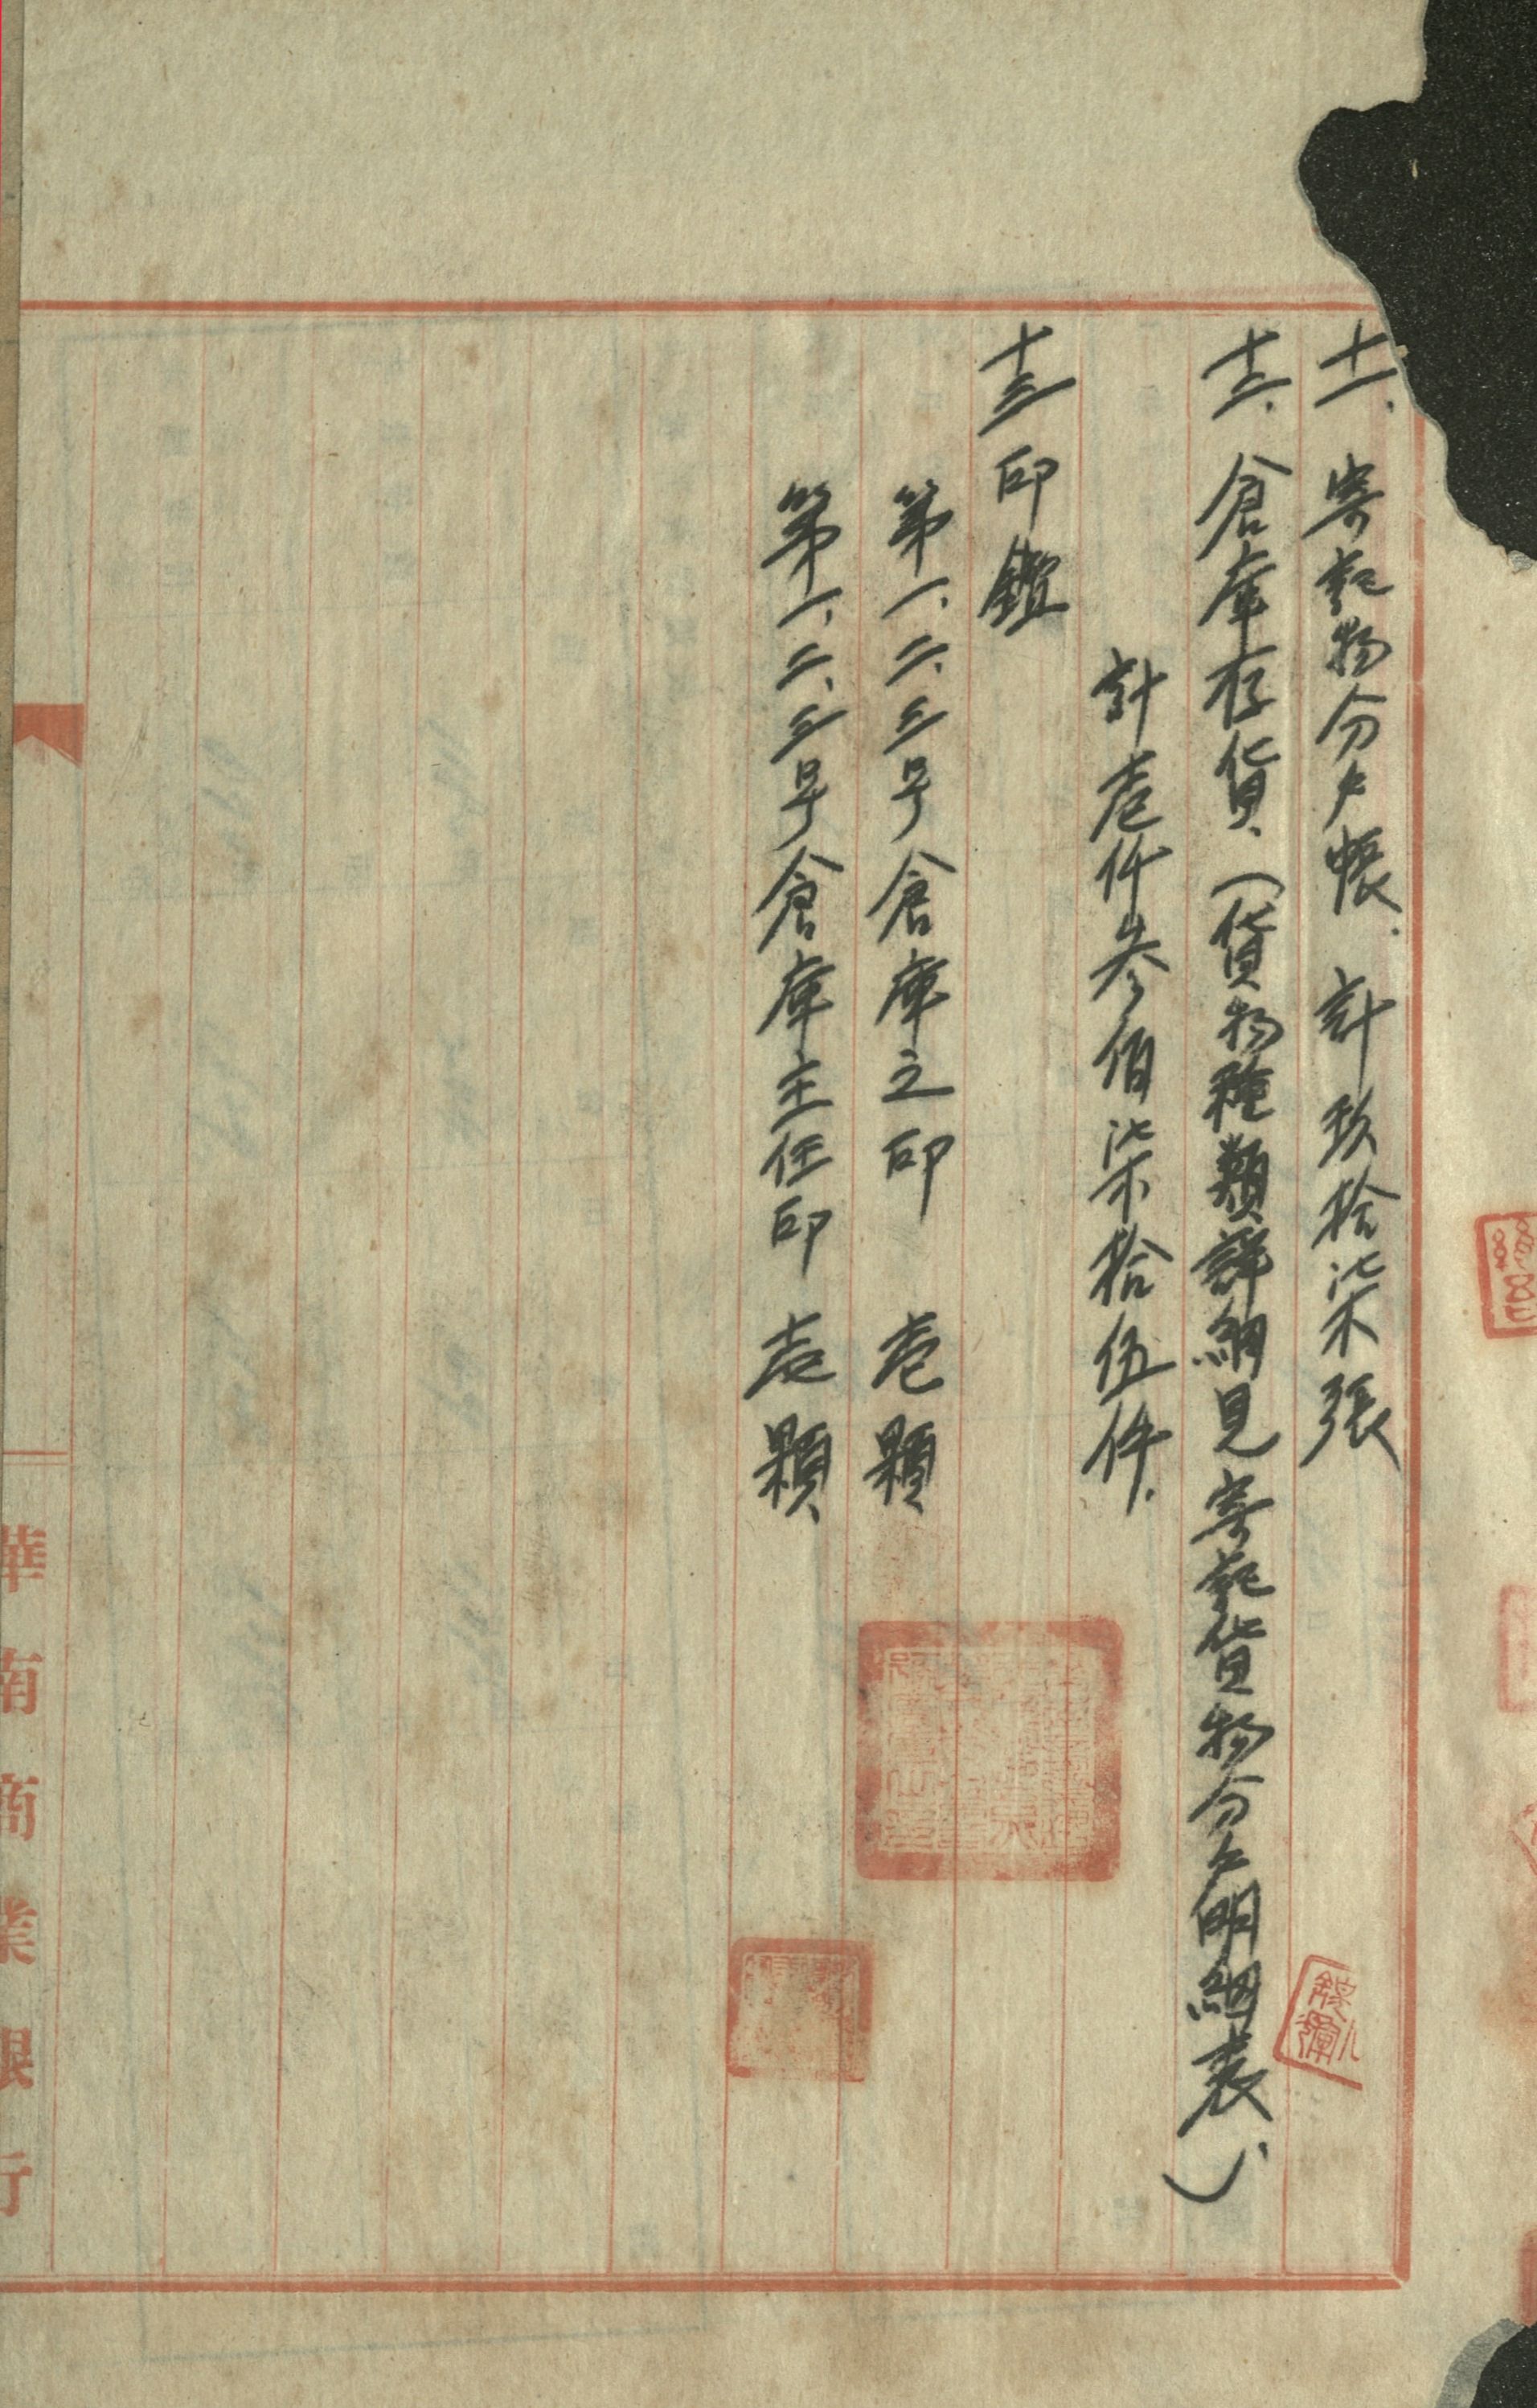 十一、寄託物分戶帳．計玖拾柒張
十二、倉庫存貨、(貨物種類詳細見寄託貨物分戶明細表)、
計壱仟叁佰柒拾伍件．
十三印鑑
第一、二、三号倉庫之印 壱顆
第一、二、三号倉庫主任印 壱顆
華南商業銀行